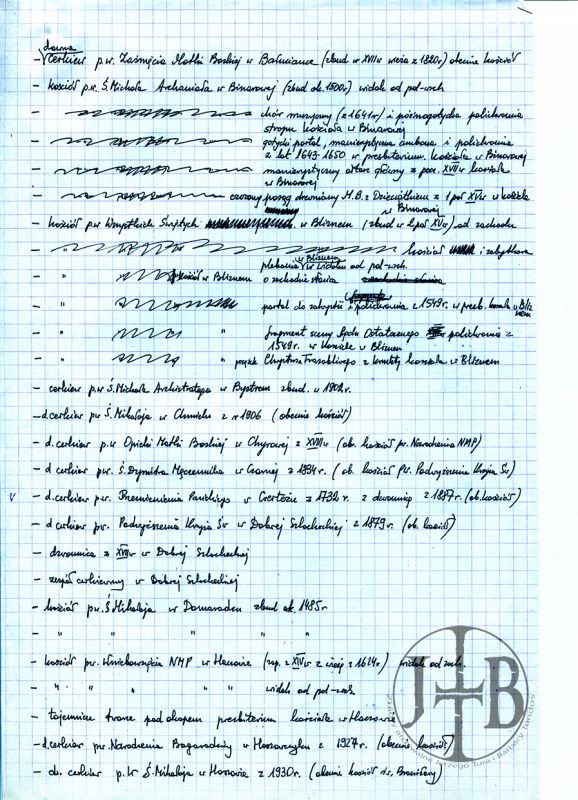 dawna
- cerkiew p.w. Zaśnięcia Matki Boskiej w Bałuciance (zbud w XVII w wieża z 1820r) obecnie kościół
- kościół p.w. Ś. Michała Archanioła w Binarowej (zbud ok. 1500r.) widok od pd-wsch
- chór muzyczny (z 1641r) i późnogotycka polichromia
stropu kościoła w Binarowej
- gotycki portal, manierystyczna ambona i polichromia
z lat 1649-1650 w prezbiterium kościoła w Binarowej
- manierystyczny ołtarz główny z pocz. XVII w kościele
w Binarowej
- posąg drewniany M.B. z Dzieciątkiem z 1 poł XV w. w kościele
w Binarowej
- kościół p.w Wszystkich Świętych w Bliznem (zbud w 2 poł XV w) od zachodu
- " kościół i zabytkowa
plebania w Bliznem w widoku od pd-zach.
- " kościół w Bliznem o zachodzie słońca
- " portal do zakrystii z polichromią z 1549r. w prezb. kościoła w Bliznem
- " " fragment sceny Sądu Ostatecznego polichromia z
1549r. w kościele w Bliznem
- " " posążek Chrystusa Frasobliwego z kościoła w Bliznem
- cerkiew p.w. Ś. Michała Archistratega w Bystrem zbud. w 1902r.
- d.cerkiew pw Ś. Mikołaja w Chmielu z r 1906 (obecnie kościół)
- d. cerkiew p.w Opieki Matki Boskiej w Chyrowej z XVIII w (ob. kościół pw. Narodzenia NMP)
- d cerkiew pw. Ś. Dymitra Męczennika w Czarnej z 1834r. (ob. kościół pw. Podwyższenia Krzyża Św)
v - d. cerkiew pw. Przemienienia Pańskiego w Czerteżu z 1732 r. z dzwonnicą z 1887r. (ob. kościół)
- d cerkiew pw. Podwyższenia Krzyża Św w Dobrej Szlacheckiej z 1879r. (ob. kościół)
- dzwonnica z XVII w w Dobrej Szlacheckiej
- zespół cerkiewny w Dobrej Szlacheckiej
- kościół pw. Ś Mikołaja w Domaradzu zbud ok. 1485r
- " " " " "
- kościół pw. Wniebowzięcia NMP w Haczowie (zap. z XIV w z wieżą z 1624r) widok od zach.
- " " " " " widok od pd-wsch
- tajemnicze twarze pod okapem prezbiterium kościoła w Haczowie
- d.cerkiew pw. Narodzenia Bogarodzicy w Hoszowczyku z 1927r. (obecnie kościół)
- ob. cerkiew p.w Ś. Mikołaja w Hoszowie z 1930r. (obecnie kościół
JTB
Zbiory archiwalne Jerzego Tura i Barbary Tondos